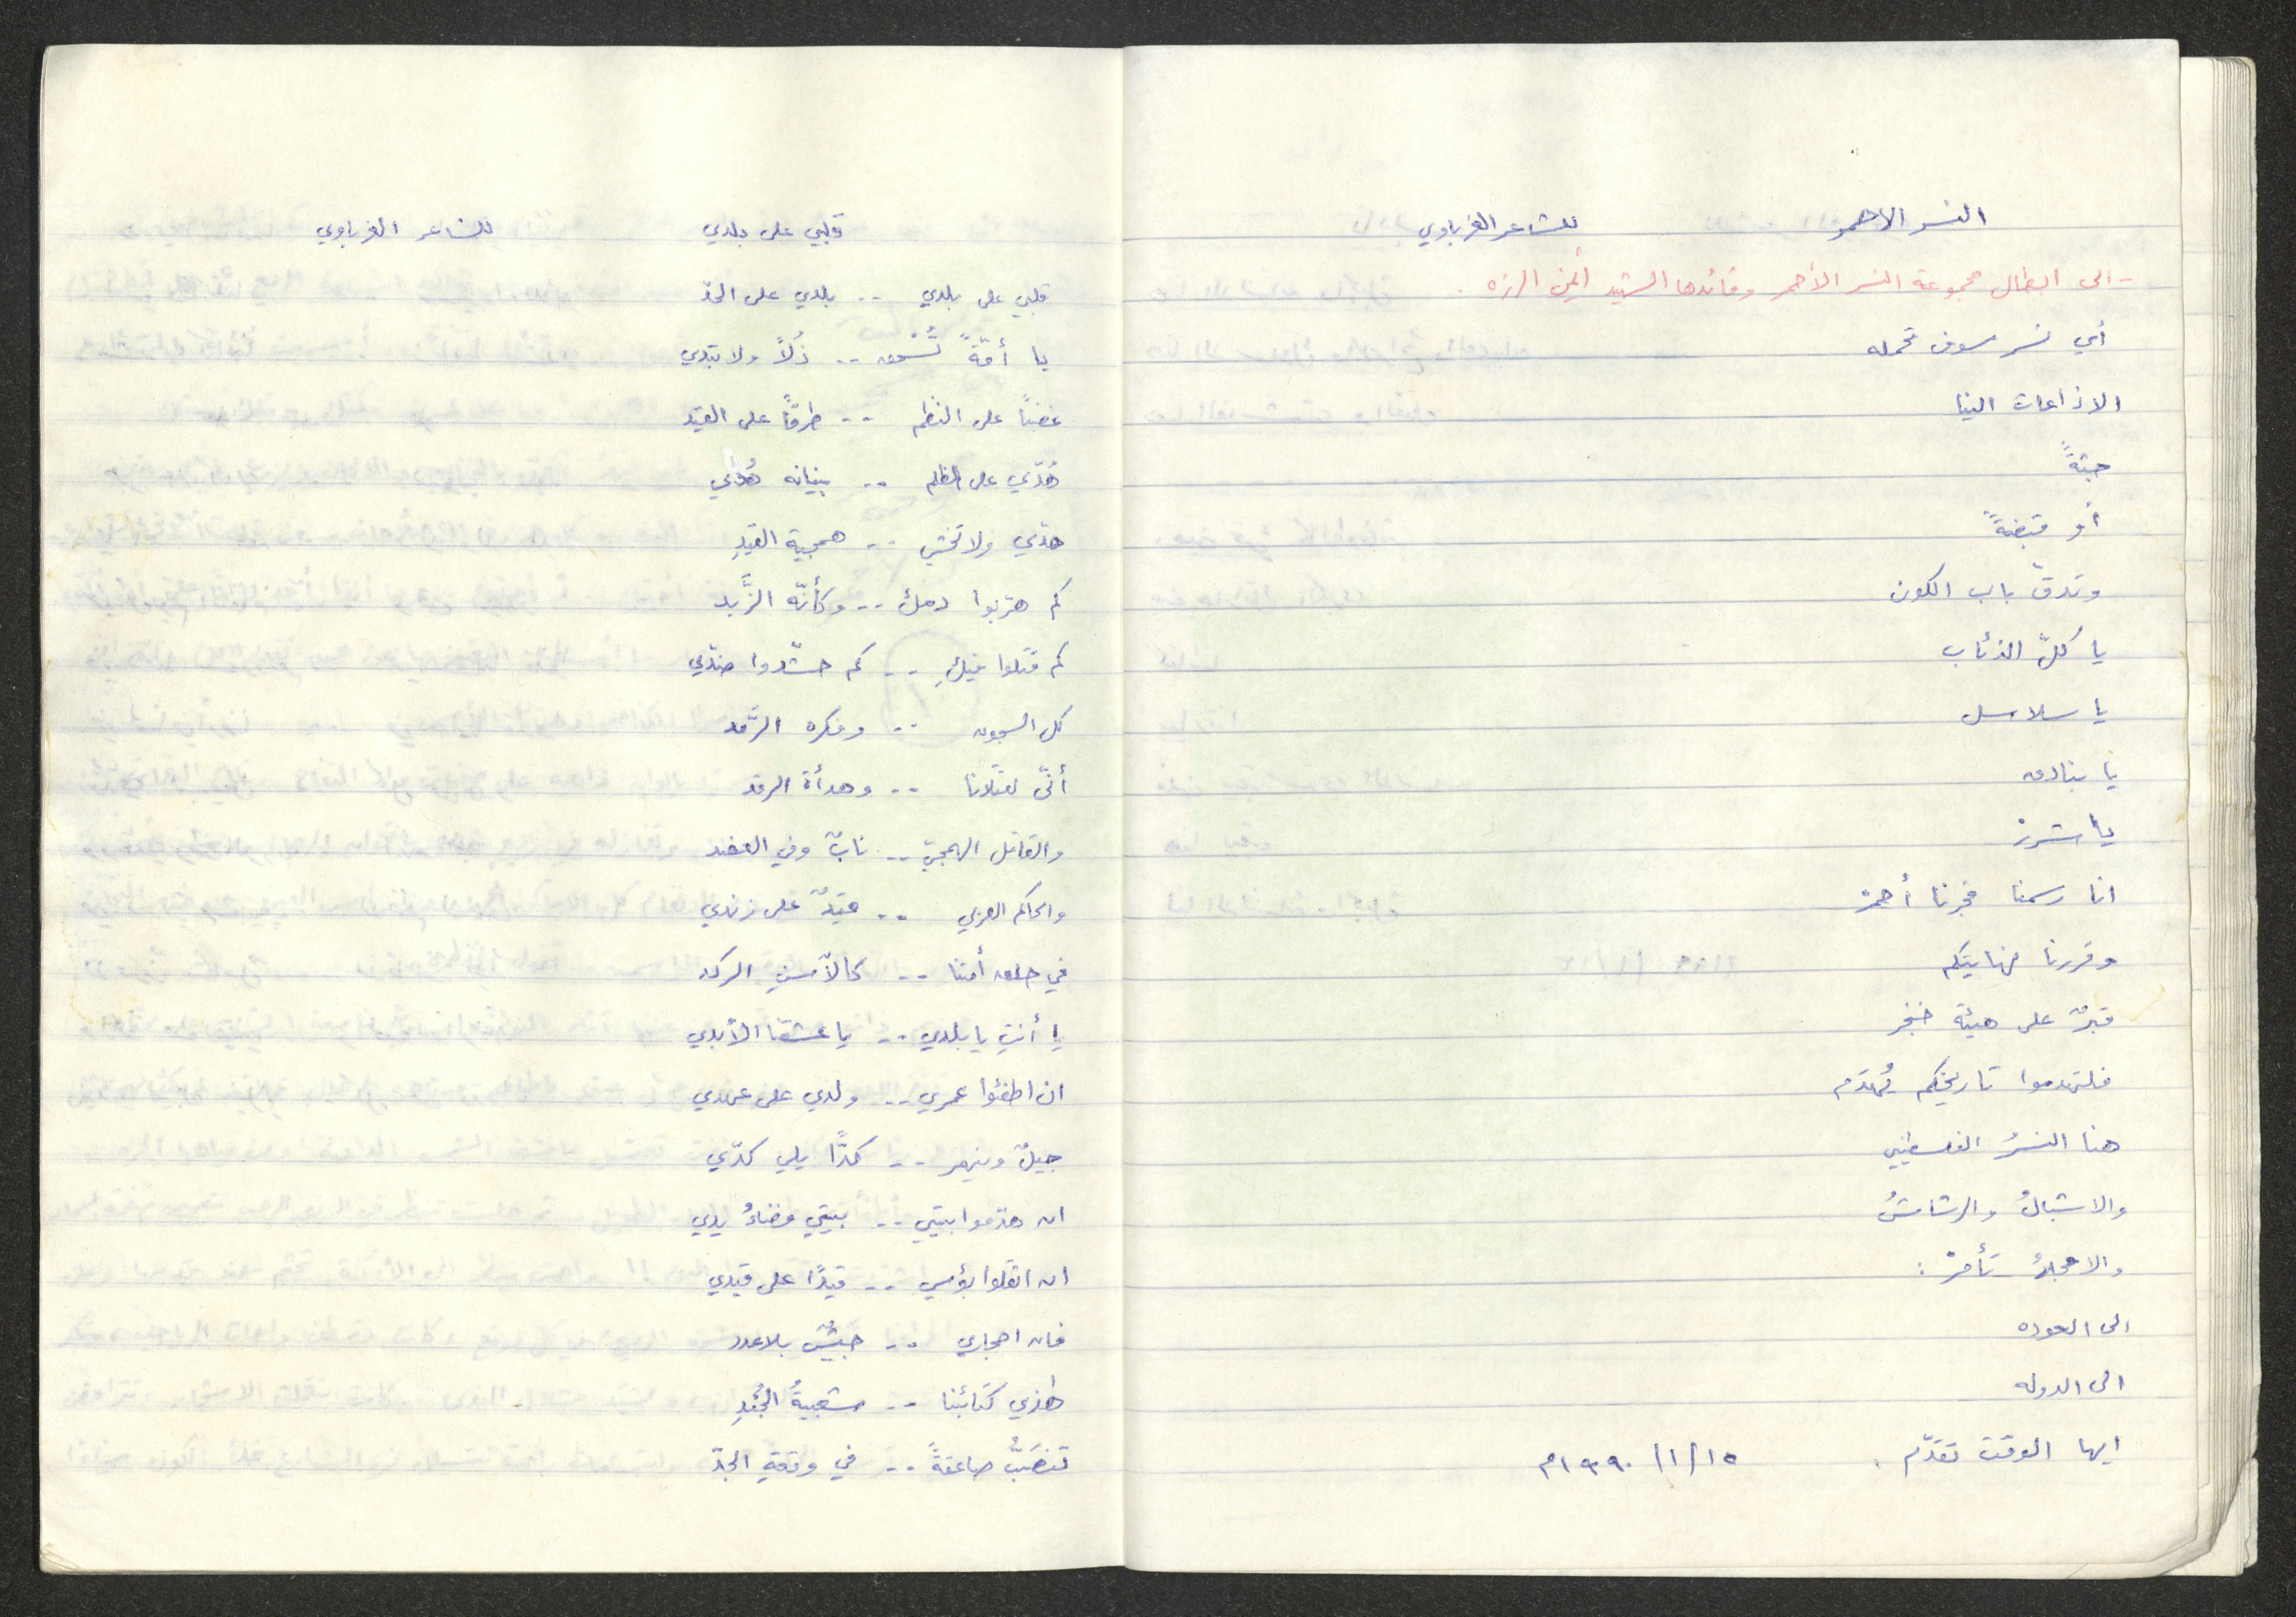 النسر الاحمر للشاعر الغرباوي
- الى ابطال مجموعة النسر الأحمر وقائدها الشهيد أيمن الرزه .
أي نسر سوف تحمله
الاذاعات الينا
جثةً
أو قبضةً
وتدقّ باب الكون
يا كلّ الذئاب
يا سلاسل
يا بنادق
يا شرر
انا رسمنا فجرنا أحمر
وقررنا نهايتكم
قبرٌ على هيئة خنجر
فلتهدموا تاريخكم يُهدّم
هنا النسرُ الفلسطيني
والاشبالُ والرشاشُ
والاحجارُ تأمرْ :
الى العوده
الى الدوله
ايها الوقت تقدّم . ١٥/١/١٩٩٠م
قلبي على بلدي للشاعر الغرباوي
قلبي على بلدي .. بلدي على الحدّ
يا أمّةً تُشْمه .. ذُلاً ولا تبدي
غضباً على النظم .. طرقاً على القيد
هُدّي على الظلم .. بنيانه هُدّي
هدّي ولا تخشي .. همجية القيدِ
كم هرّبوا دمك .. وكأنّه الزَّبد
كم قتلوا فيكِ .. كم حشّدوا ضدّي
كل السجون .. وفكره الرَّمد
أنّى لقتلانا .. وهدأة الرقد
والقاتل الهمجيّ .. نابٌ وفي العضد
والحاكم العربي .. قيدٌ على زندي
في حلق أمتنا .. كالآسنِ الركد
يا أنتِ يا بلدي .. يا عشقنا الأبدي
ان اطفئوا عمري .. ولدي على عهدي
جيلٌ وينهر .. كدًّا يلي كدّي
ان هدّموا بيتي .. بيتي فضاءُ يدي
ان اثقلوا بؤسي .. قيدًا على قيدي
فان احجاري .. جيشٌ بلا عدد
هذي كتائبنا .. شعبيةُ الجُندِ
تنصَبُّ صاعقةً .. في وقفةِ الجدّ